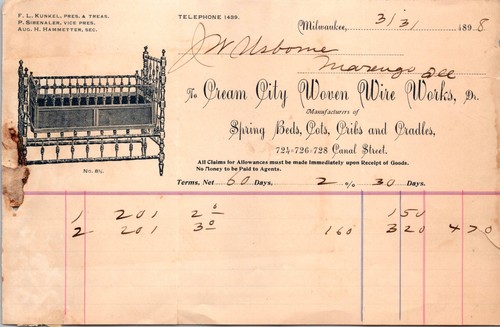 F. L. KUNKEL, PRES. & TREAS.
P. SIBENALER, VICE PRES.
AUG. H. HAMMETTER, SEC.
TELEPHONE 1489.
Milwaukee, 3/31 1898
J W Usborne
Marengo Ill
To Cream City Woven Wire Works, Dr.
Manufacturers of
Spring Beds, Cots, Cribs and Cradles,
724-726-728 Canal Street.
All Claims for Allowances must be made immediately upon Receipt of Goods.
No Money to be Paid to Agents.
No. 8½.
Terms, Net 60 Days, 2 % 30 Days.
1 201 2 6 150
2 201 3 0 160 320 470